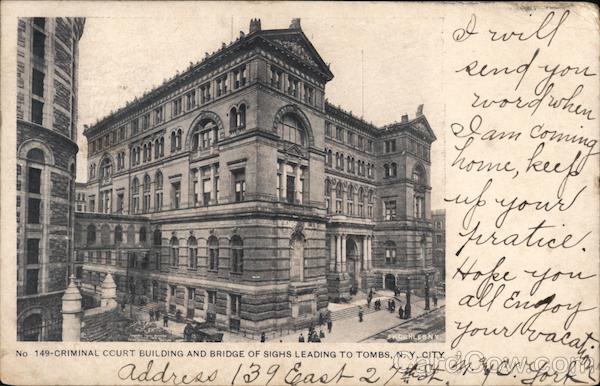 I will
send you
word when
I am coming
home, keep
up your
pratice.
Hope you
all Enjoy
your vacation
A.C. BOSSELMAN
No 149-CRIMINAL COURT BUILDING AND BRIDGE OF SIGHS LEADING TO TOMBS, N.Y. CITY
Address 139 East 27th St. N.Y. York
CardCow.com